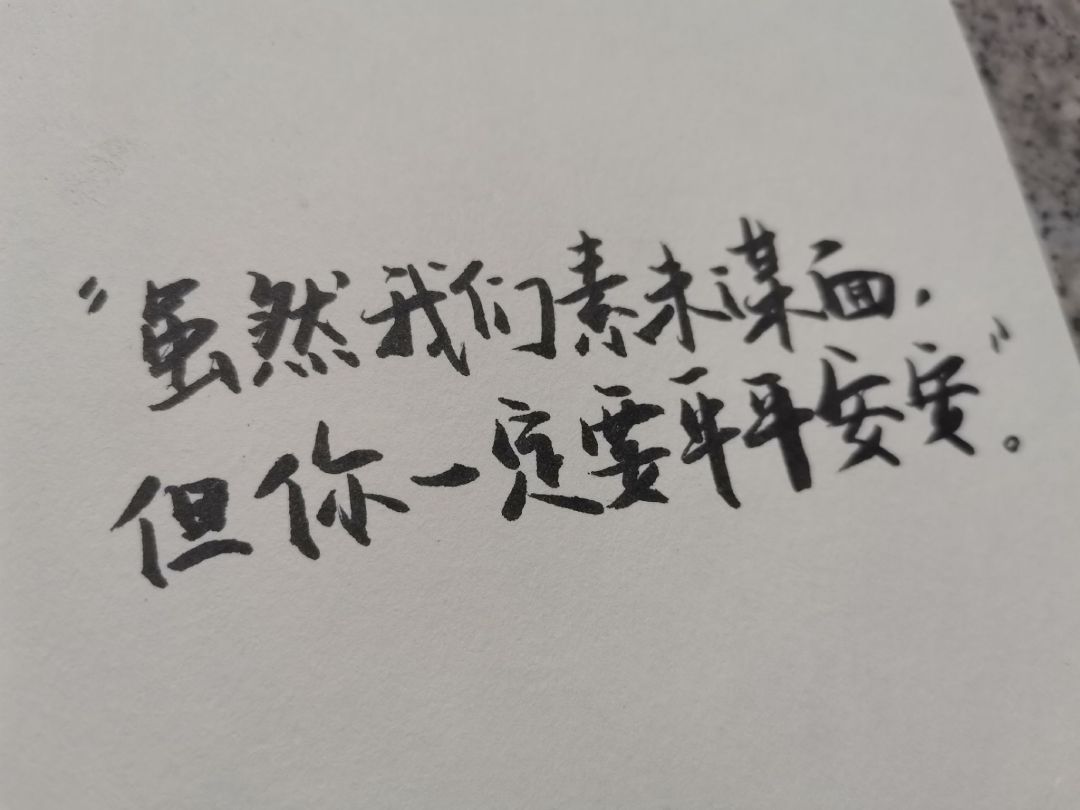 “虽然我们素未谋面，
但你一定要平平安安”。